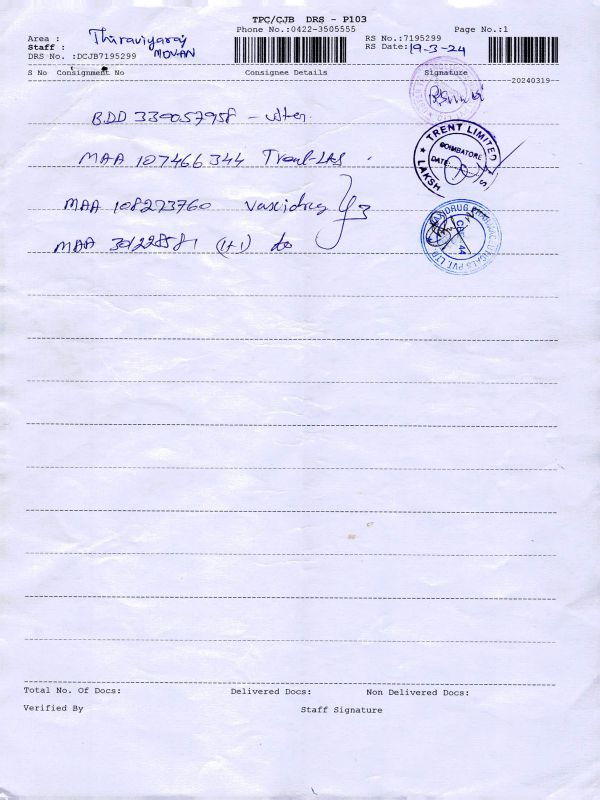 TPC/CJB DRS - P103
Phone No.:0422-3505555
Page No.:1
Area : Thiraviyaraj
RS No.:7195299
Staff : MOHAN
RS Date: 19-3-24
DRS No. :DCJB7195299
S No Consignment No Consignee Details Signature
20240319
BDD 330057958 -
MAA 107466344 Trent-LAS
MAA 108273760 vaxidrug 3
MAA 301228581 (1+1) do
TRENT LIMITED
COIMBATORE
DATE
LAKSH
Total No. Of Docs: Delivered Docs: Non Delivered Docs:
Verified By Staff Signature